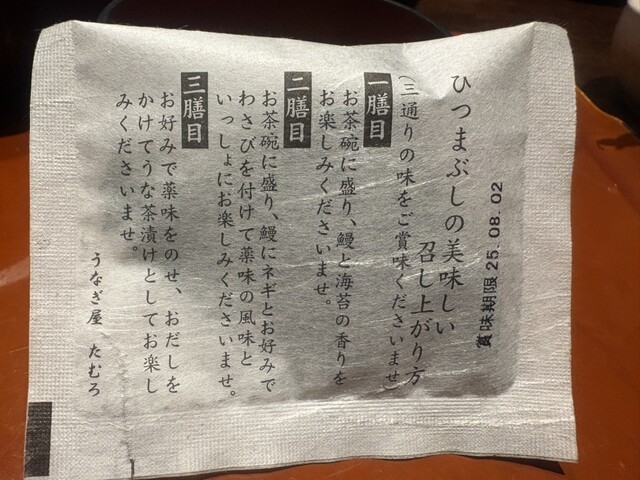 賞味期限 25.08.02
ひつまぶしの美味しい
召し上がり方
(三通りの味をご賞味くださいませ
一膳目
お茶碗に盛り、鰻と海苔の香りを
お楽しみくださいませ。
二膳目
お茶碗に盛り、鰻にネギとお好みで
わさびを付けて薬味の風味と
いっしょにお楽しみくださいませ。
三膳目
お好みで薬味をのせ、おだしを
かけてうな茶漬けとしてお楽し
みくださいませ。
うなぎ屋 たむろ